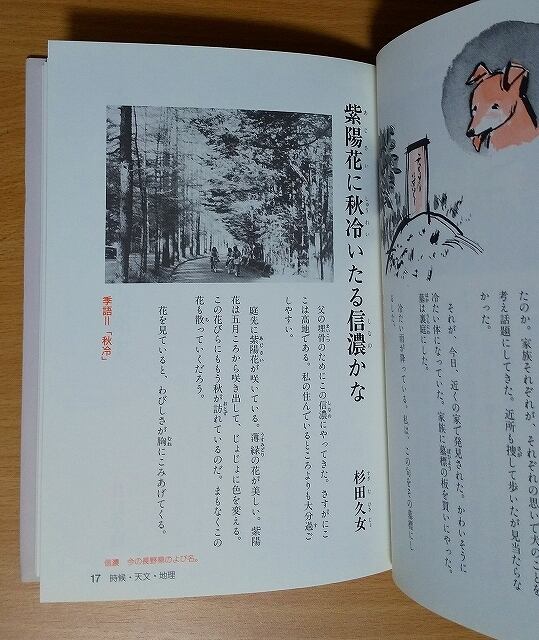 たのか。家族それぞれが、それぞれの思いで犬のことを
考え話題にしてきた。近所も捜して歩いたが見当たらな
かった。
それが、今日、近くの家で発見された。かわいそうに
冷たい体になっていた。家族に墓標の板を買いにやった。
墓は裏庭にした。
冷たい雨が降っている。私は、この句をその墓標にし
紫陽花に秋冷いたる信濃かな
杉田久女
父の埋骨のためにこの信濃にやってきた。さすがにこ
こは高地である。私の住んでいるところよりも大分過ご
しやすい。
庭先に紫陽花が咲いている。薄緑の花が美しい。紫陽
花は五月ころから咲き出して、じょじょに色を変える。
この花びらにももう秋が訪れているのだ。まもなくこの
花も散っていくだろう。
花を見ていると、わびしさが胸にこみあげてくる。
季語=「秋冷」
信濃 今の長野県のよび名。
17 時候・天文・地理